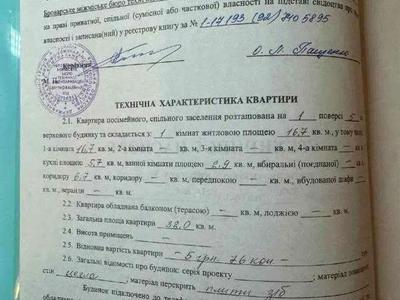 Броварське міжміське бюро техні
на праві приватної, спільної (сумісної або часткової) власності на підставі свідоцтва про
власності і записана(ний) у реєстрову книгу за №
О. Л. Пащенко
Керівник
М.
ТЕХНІЧНА ХАРАКТЕРИСТИКА КВАРТИРИ
2.1. Квартира посімейного, спільного заселення розташована на 1 поверсі 5
верхового будинку та складається з: 1 кімнат житловою площею 16,7 кв. м, у тому числі
1-а кімната 16,7 кв. м, 2-а кімната – кв. м, 3-я кімната – кв. м, 4-а кімната – кв.
кухні площею 5,7 кв. м, ванної кімнати площею 2,9 кв. м, вбиральні (поєднаної) – кв.
коридору 6,7 кв. м, коридору – кв. м, передпокою – кв. м, вбудованої шафи –
кв. м, веранди – кв. м.
2.2. Квартира обладнана балконом (терасою) – кв. м, лоджією – кв. м.
2.3. Загальна площа квартири 32,0 кв. м.
2.4. Висота приміщень –
2.5. Відновна вартість квартири – 5 грн. 76 коп –
2.6. Загальні відомості про будинок: серія проекту ; матеріал
стін цегла , матеріал перекриття плити з/б
Будинок підключено до